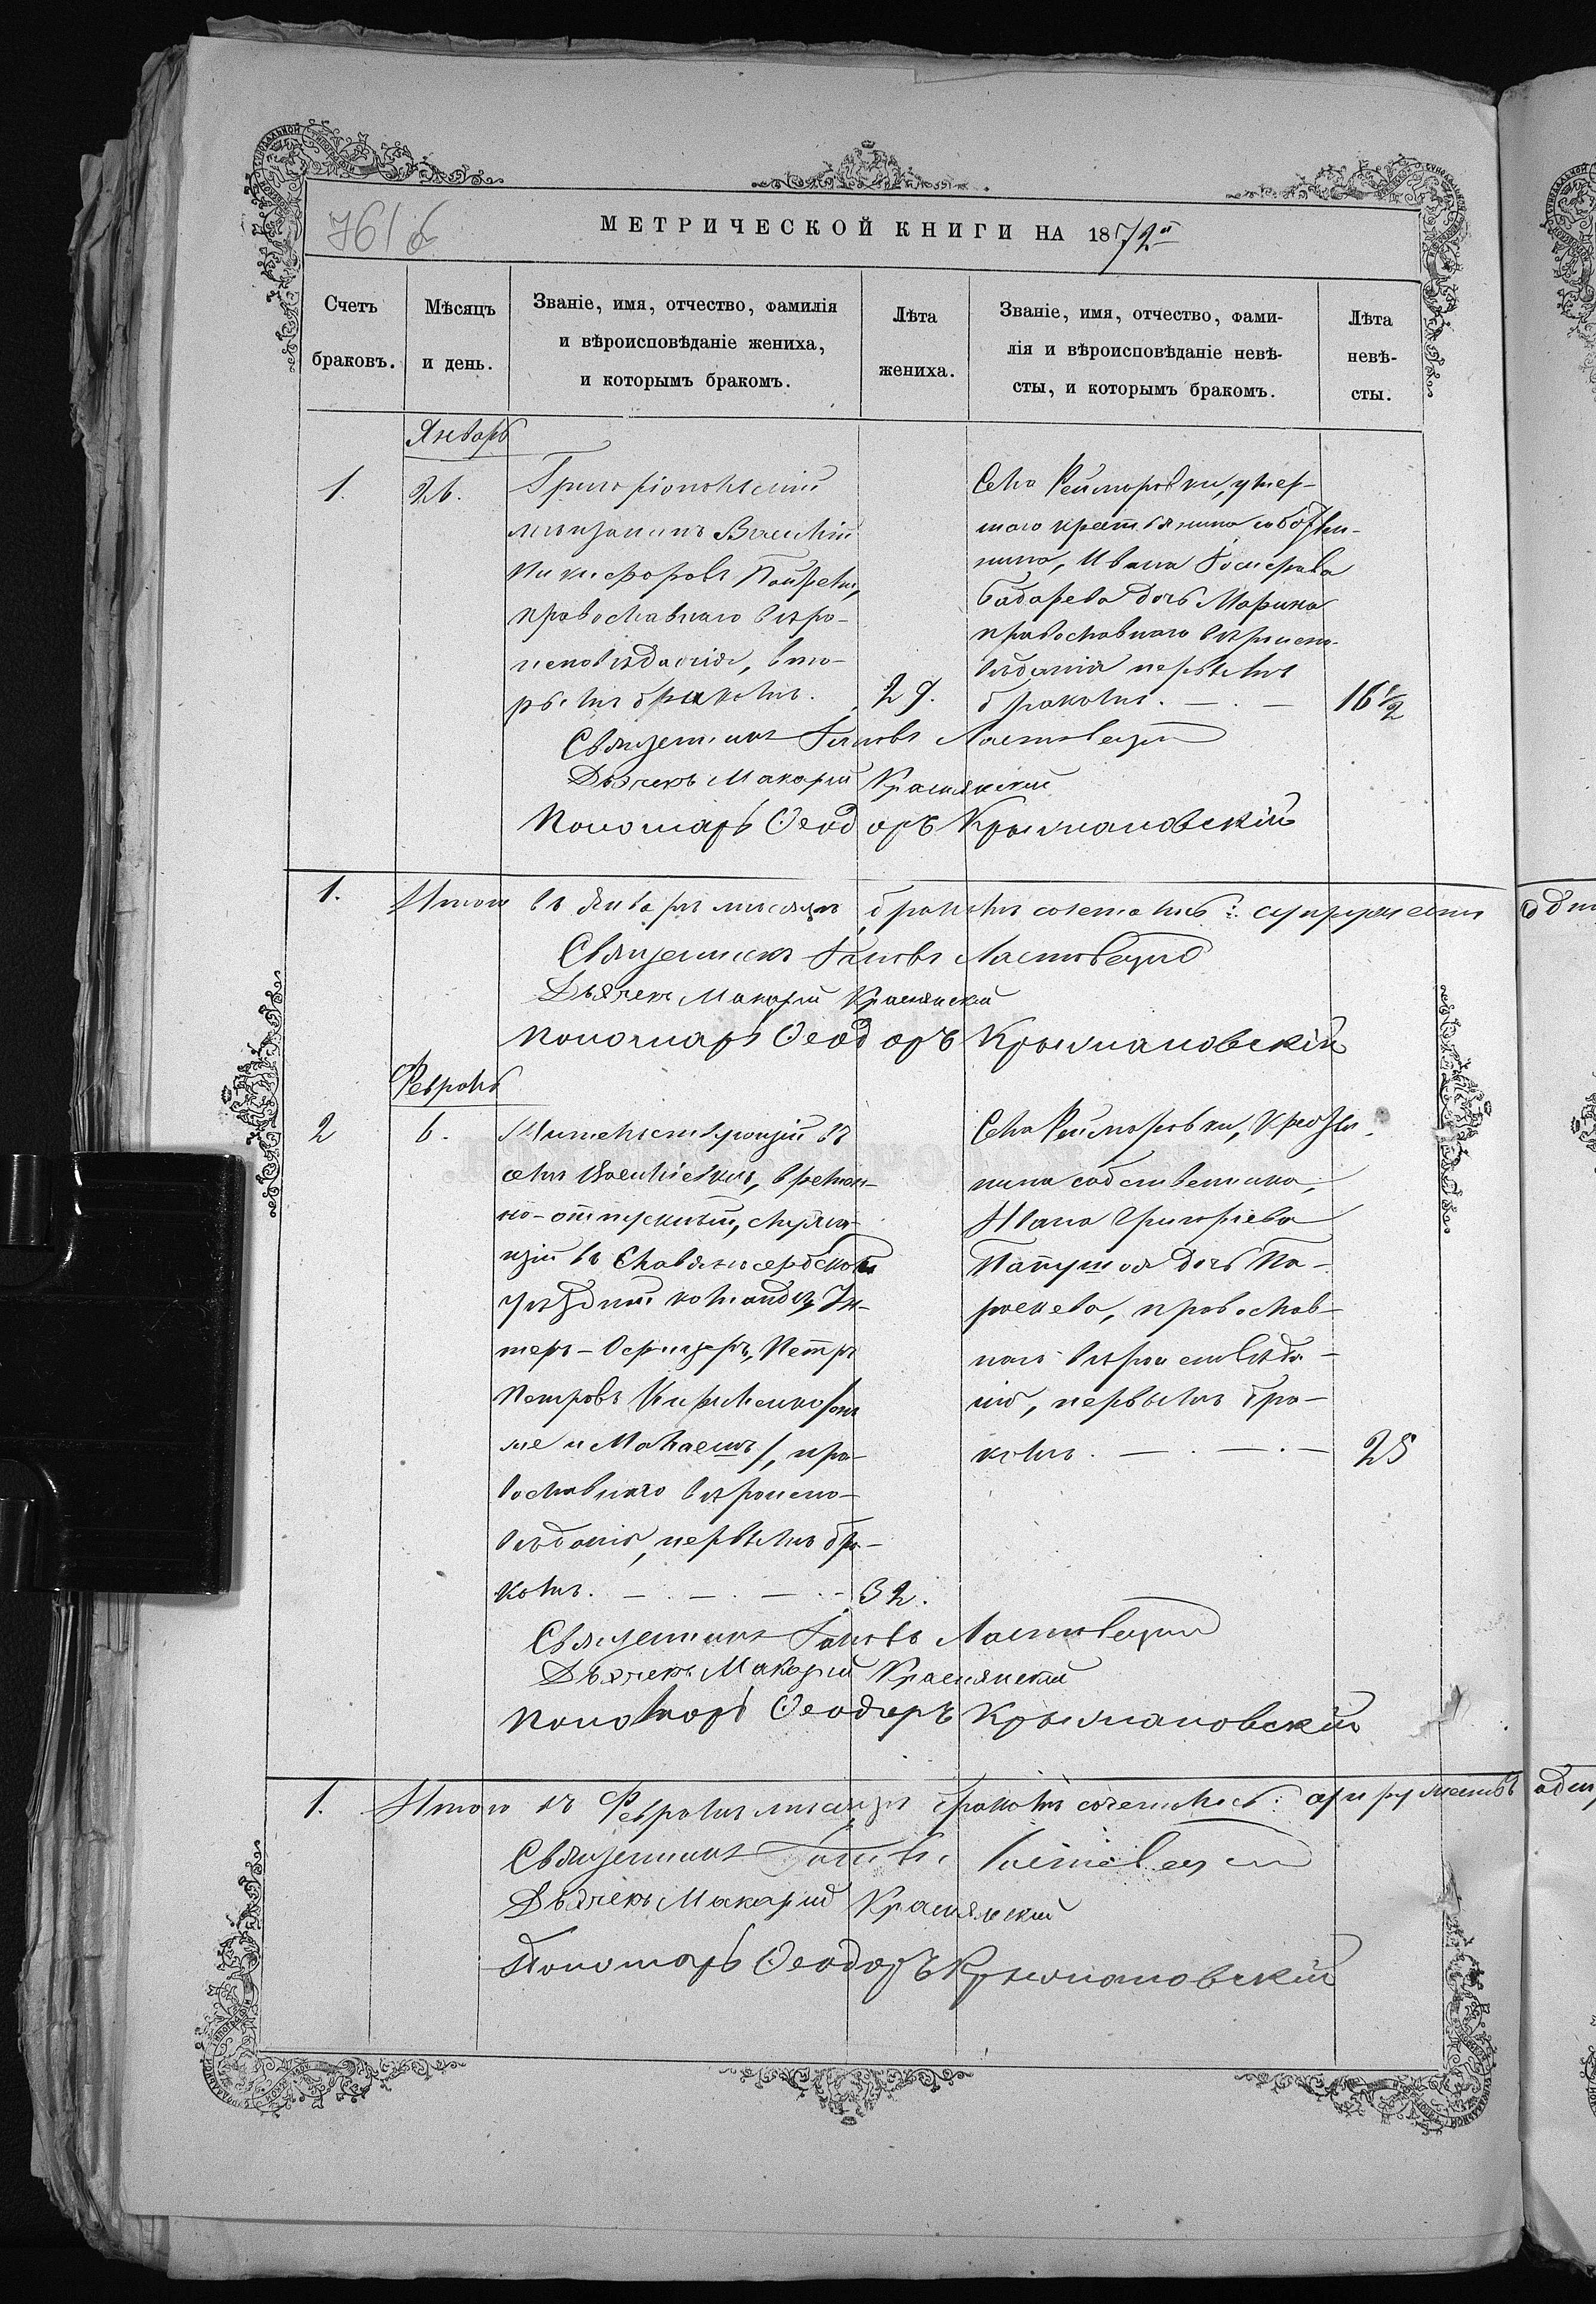 761 б
МЕТРИЧЕСКОЙ КНИГИ НА 1872й
Счетъ браковъ.
Мѣсяцъ и день.
Званіе, имя, отчество, фамилія
и вѣроисповѣданіе жениха,
и которымъ бракомъ.
Лѣта жениха.
Званіе, имя, отчество, фами-
лія и вѣроисповѣданіе невѣ-
сты, и которымъ бракомъ.
Лѣта невѣ-
сты.
Январь
1.
26.
Григоріопольскій
мѣщанинъ Василій
Никифоровъ
православнаго вѣро-
исповѣданія, вто-
рымъ бракомъ.
29.
Села Реймаровки, умер-
шаго крестьянина собствен-
ника, Ивана
дочь Марина
православнаго вѣроиспо-
вѣданія первымъ
бракомъ. — . —
16 1/2
Священникъ Іаковъ Ластовецкій
Дьячекъ Макарій Краснянскій
Пономарь Ѳеодоръ Крыжановскій
1.
Итого въ Январѣ мѣсяцѣ бракомъ сочеталось: супружествъ одно
Священникъ Іаковъ Ластовецкій
Дьячекъ Макарій Краснянскій
Пономарь Ѳеодоръ Крыжановскій
Февраль
2
6.
Жительствующій въ
селѣ Васильевкѣ, времен-
но-отпускный, служа-
щій въ Славяносербской
уѣздной командѣ Ун-
теръ-Офицеръ, Петръ
Петровъ Кириленко /онъ
же и /, пра-
вославнаго вѣроиспо-
вѣданія, первымъ бра-
комъ. — . — . — . —
32.
Села Реймаровки, Крестья-
нина собственника,
Ивана Григорьева
дочь Па-
раскева, православ-
наго вѣроисповѣда-
нія, первымъ бра-
комъ. — . — . —
25
Священникъ Іаковъ Ластовецкій
Дьячекъ Макарій Краснянскій
Пономарь Ѳеодоръ Крыжановскій
1.
Итого въ Февралѣ мѣсяцѣ бракомъ сочеталось: супружествъ
Священникъ Іаковъ Ластовецкій
Дьячекъ Макарій Краснянскій
Пономарь Ѳеодоръ Крыжановскій